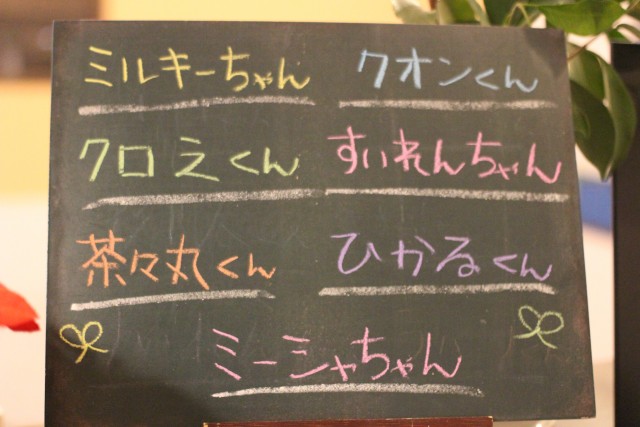 ミルキーちゃん
クオンくん
クロえくん
すいれんちゃん
茶々丸くん
ひかるくん
ミーシャちゃん